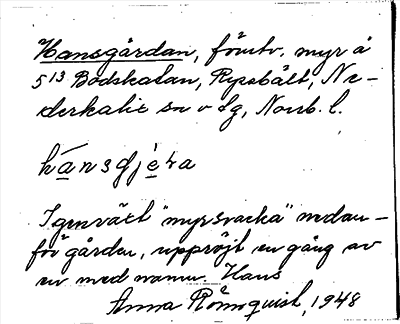 Hansgårdan, förutv. myr å
5¹³ Bodskatan, Rysbält, Ne-
derkalix sn o lg, Norrb. l.
hánsgjɛ́ɽa
Igenväxt "myrsvacka" nedan-
för gården, uppröjt en gång av
en med namn Hans
Anna Rönnquist, 1948